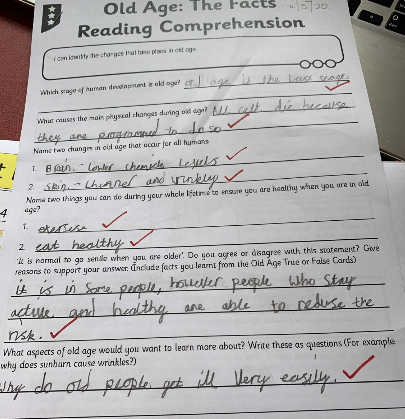 Old Age: The Facts
Reading Comprehension
I can identify the changes that take place in old age.
Which stage of human development is old age? old age is the last stage.
What causes the main physical changes during old age? All cell die because
they are programmed to do so
Name two changes in old age that occur for all humans.
1. Brain. - Lower chemicle levels
2. Skin. - thinner and wrinkly
Name two things you can do during your whole lifetime to ensure you are healthy when you are in old
age?
1. exersise
2. eat healthy
'It is normal to go senile when you are older'. Do you agree or disagree with this statement? Give
reasons to support your answer. (Include facts you learnt from the Old Age True or False Cards)
it is in some people, however people who stay
active and healthy are able to reduse the
risk.
What aspects of old age would you want to learn more about? Write these as questions (For example:
why does sunburn cause wrinkles?)
Why do old people get ill very easilly.